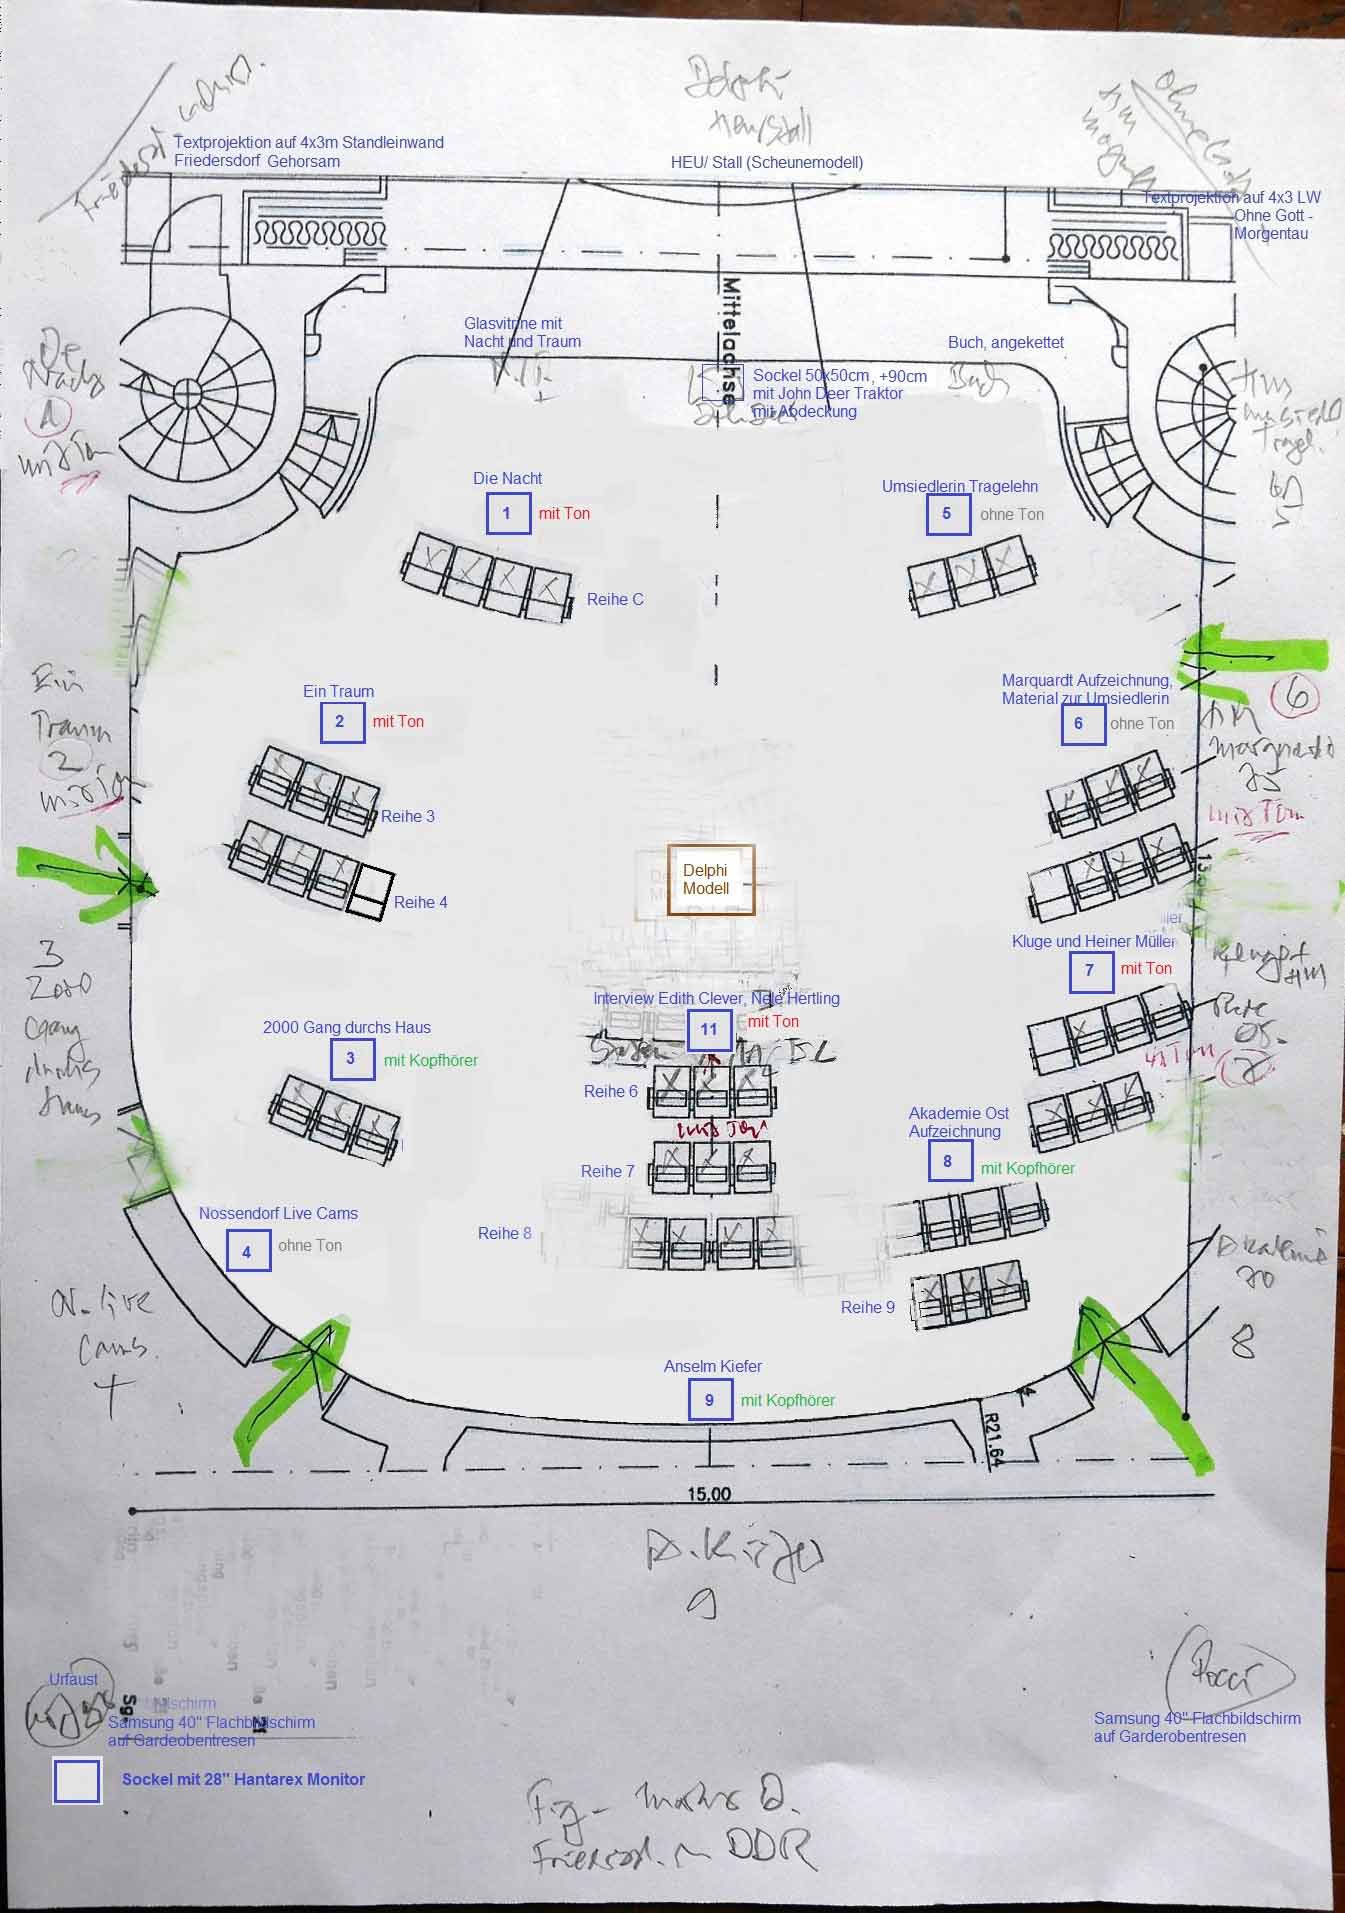 Delphi
Heu/Stall
Textprojektion auf 4x3m Standleinwand
Friedersdorf Gehorsam
HEU/ Stall (Scheunemodell)
Textprojektion auf 4x3 LW
Ohne Gott -
Morgentau
Mittelachse
Glasvitrine mit
Nacht und Traum
Buch, angekettet
Sockel 50x50cm, +90cm
mit John Deer Traktor
mit Abdeckung
Buch
Die
Nacht
1
mit Ton
Die Nacht
1
mit Ton
Reihe C
Umsiedlerin Tragelehn
5
ohne Ton
Ein
Traum
2
mit Ton
Ein Traum
2
mit Ton
Reihe 3
Reihe 4
Marquardt Aufzeichnung,
Material zur Umsiedlerin
6
ohne Ton
6
HM
Marquardt
mit Ton
Delphi
Modell
Kluge und Heiner Müller
7
mit Ton
3
2000
Gang
durchs
Haus
2000 Gang durchs Haus
3
mit Kopfhörer
Interview Edith Clever, Nele Hertling
11
mit Ton
Reihe 6
mit Ton
Reihe 7
Reihe 8
Akademie Ost
Aufzeichnung
8
mit Kopfhörer
Reihe 9
Akademie
8
Nossendorf Live Cams
4
ohne Ton
N-live
Cams.
4
Anselm Kiefer
9
mit Kopfhörer
R21.64
15.00
A. Kiefer
9
Urfaust
Samsung 40" Flachbildschirm
auf Gardeobentresen
Sockel mit 28" Hantarex Monitor
Pocci
Samsung 40" Flachbildschirm
auf Garderobentresen
DDR